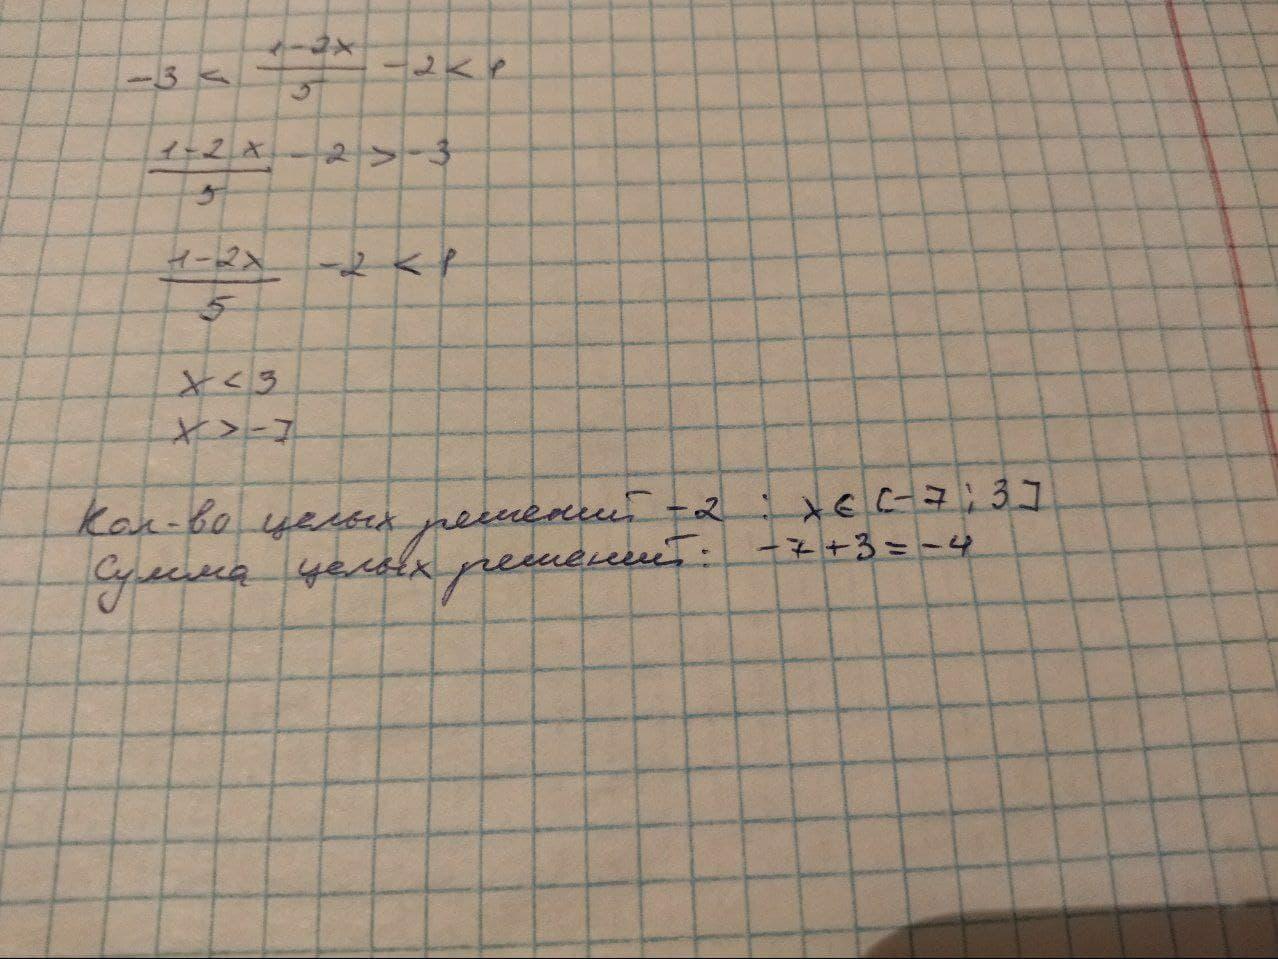 -3 < (1-2x)/5 - 2 < 1
(1-2x)/5 - 2 > -3
(1-2x)/5 -2 < 1
x < 3
x > -7
Кол-во целых решений - 2 : x ∈ [-7 ; 3]
Сумма целых решений: -7+3=-4